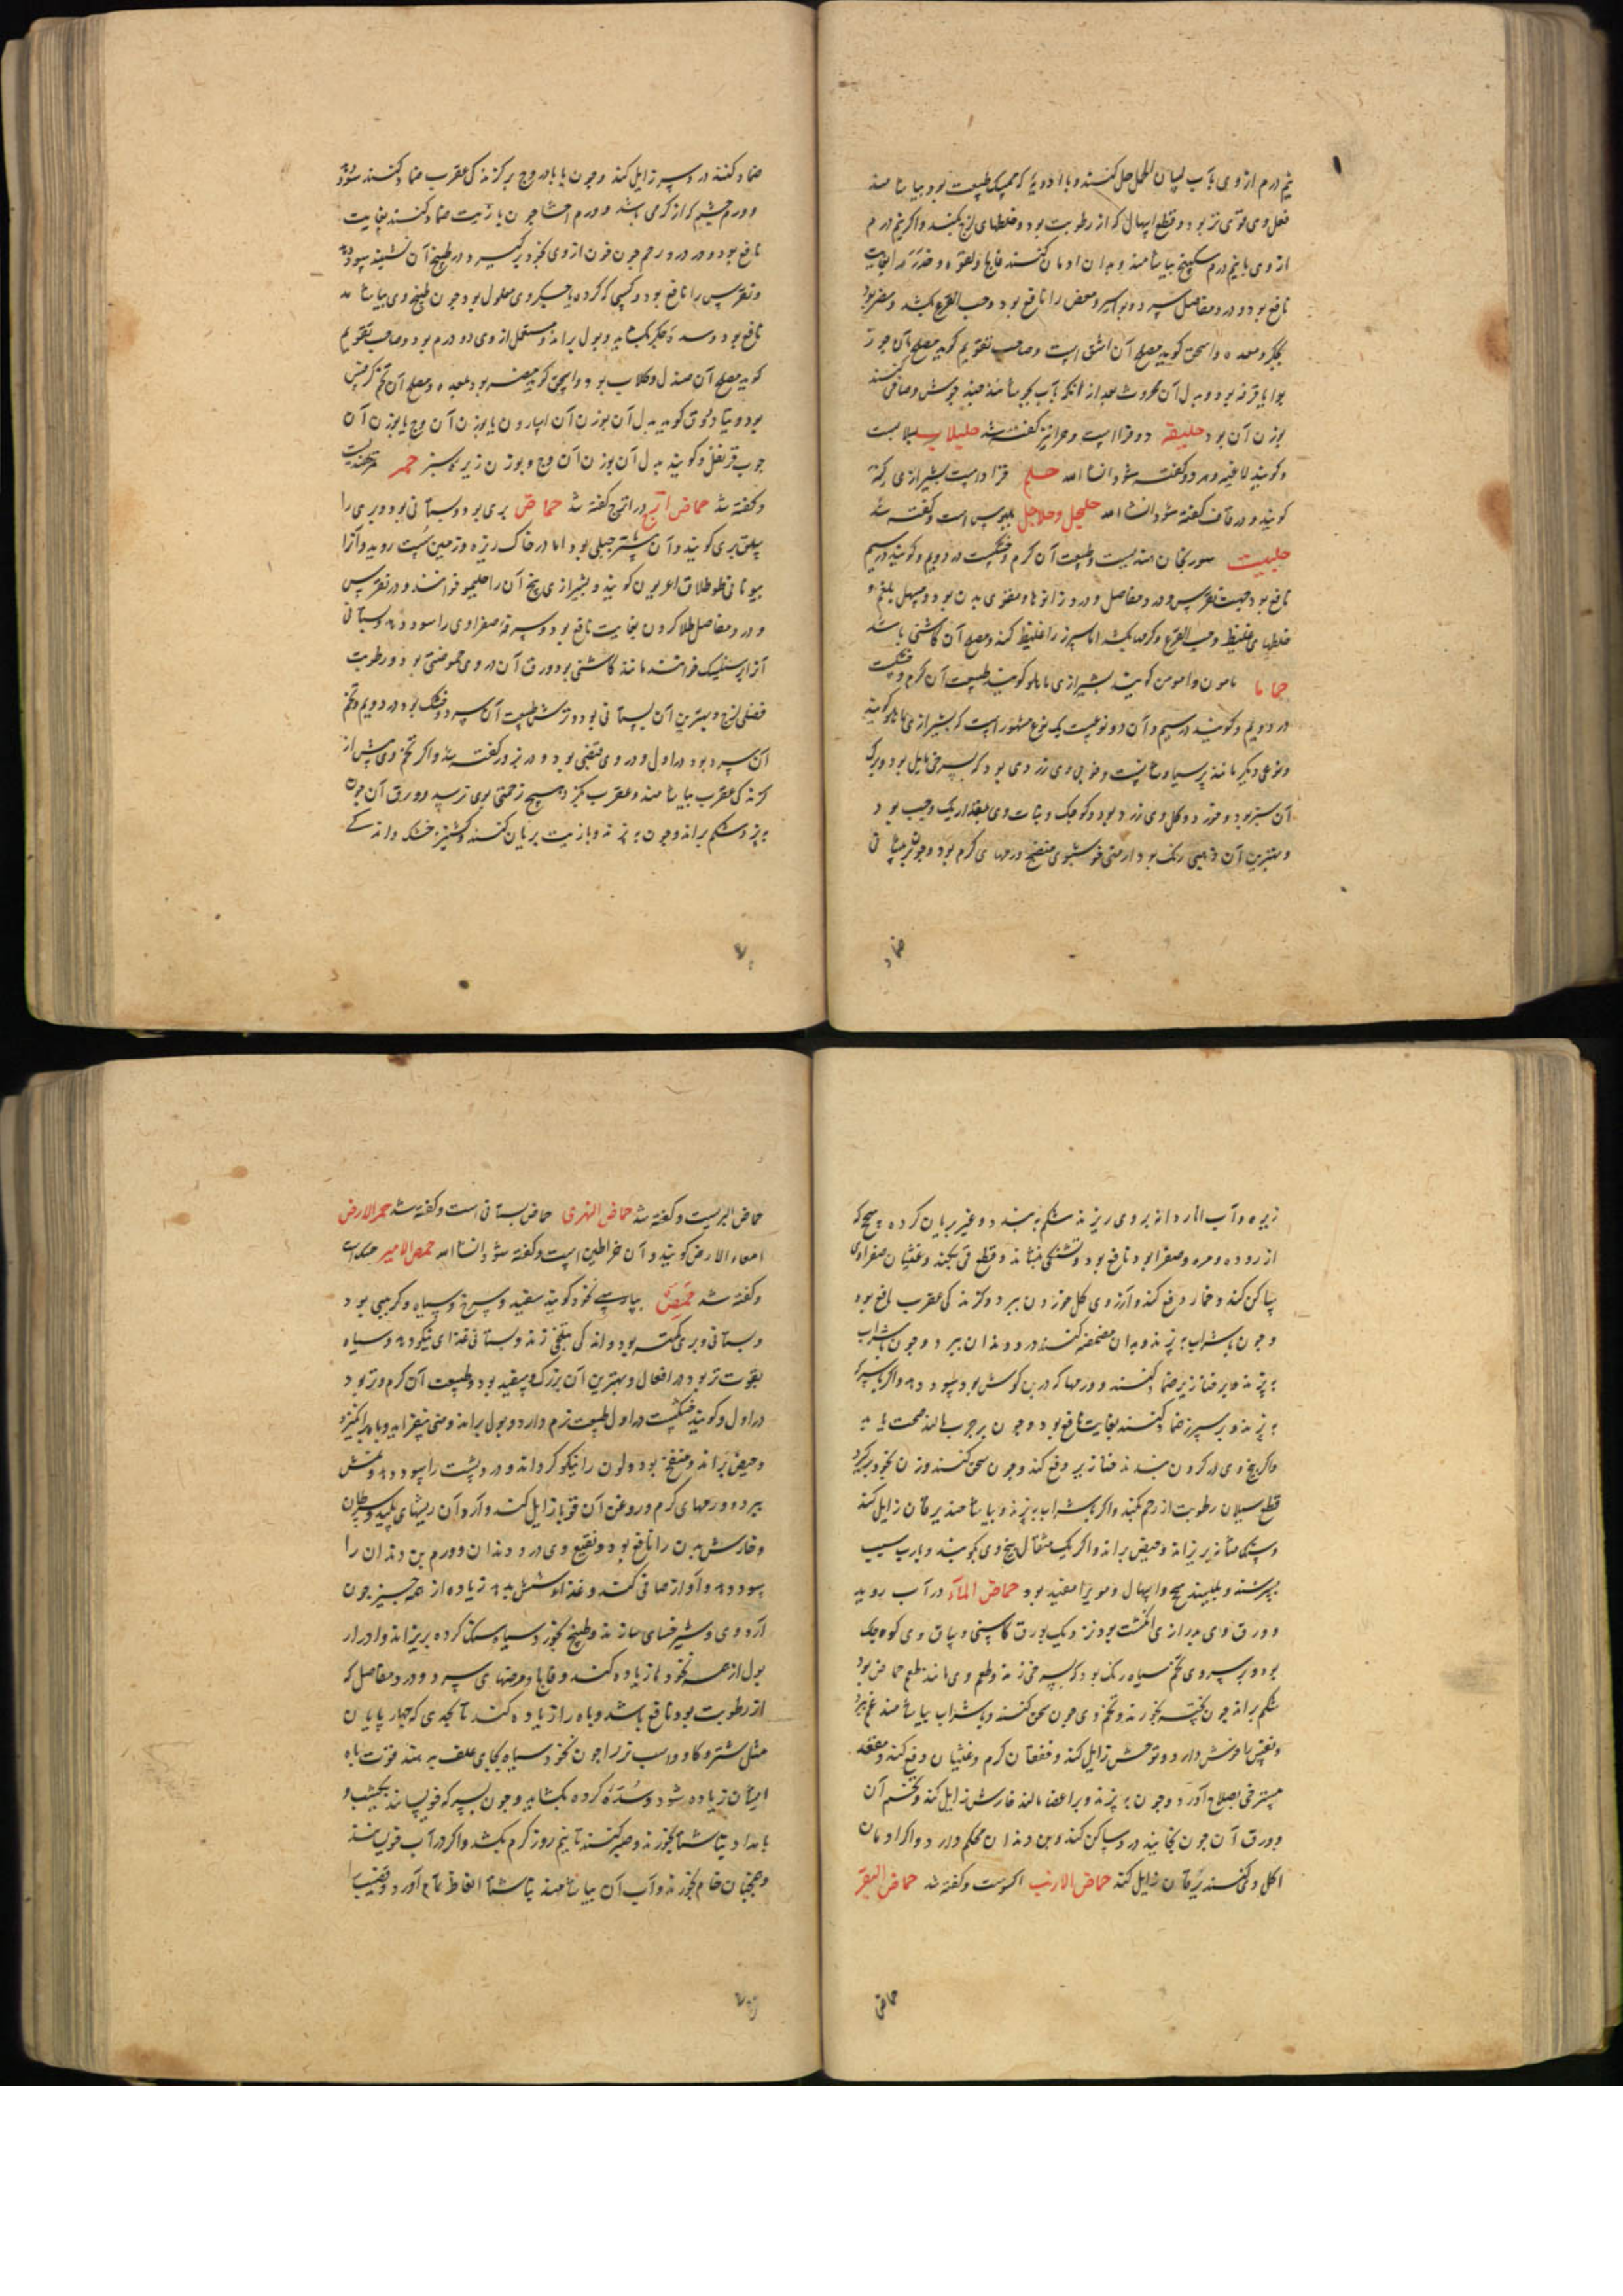 نیم درم از وی با آب لسان الحمل حل کنند و با ادویه که ممسک طبیعت بود بیاشامند
فعل وی قوی تر بود و قطع اسهال که از رطوبت بود و خلطهای لزج بکند و اگر نیم درم
از وی با نیم درم سکبینج بیاشامند و بدان ادمان کنند فالج و لقوه و خدر را بغایت
نافع بود و درد مفاصل سرد و بواسیر و مغص را نافع بود و حب القرع بکشد و مضر بود
بجگر و معده و اسحق گوید مصلح آن اشق است و صاحب تقویم گوید مصلح آن جوز
بوا یا قرفه بود و بدل آن محروث بعد از آنکه بآب بجوشانند چند جوش و صافی کنند
بوزن آن بود حلیقه دو قرا است و حرانیز گفته شد حلبلاب لبلابست
و گویند لاغیه و هر دو گفته شود انشاء الله حلم قراد است بشیرازی کنه
گویند و در قاف گفته شود انشاء الله حلیحل و حلاحل بلبوس است و گفته شد
حلبیت سورنجان هندیست و طبیعت آن گرم و خشکست در دویم و گویند در سیم
نافع بود جهت نقرس و درد مفاصل و درد زانوها و مقوی بدن بود و مسهل بلغم و
خلطهای غلیظ و حب القرع و کرمها بکشد اما سپرز را غلیظ کند و مصلح آن کاشنی باشد
حماما مامون و امومن گویند بشیرازی ماهلو گویند طبیعت آن گرم و خشکست
در دویم و گویند در سیم و آن دو نوعست یک نوع مشهور است که بشیرازی ماهلو گویند
و نوعی دیگر مانند پرسیاوشانست و خوشبوی وی زردی بود که بسرخی مایل بود و برگ
آن سبز بود و خرد و گل وی زرد بود و کوچک و نبات وی بمقدار یک وجب بود
و بهترین آن ذهبی رنگ بود ارمنی خوشبوی منضج ورمهای گرم بود و چون بر پیشانی
ضماد
ضماد کنند درد سر زایل کند و چون با بادروج بر گزندگی عقرب ضماد کنند سود دهد
و ورم چشم که از گرمی باشد و ورم احشا چون با زیت ضماد کنند بغایت
نافع بود و درد رحم چون فرزجه از وی بخود برگیرد و در طبیخ آن نشینند سود دهد
و نقرس را نافع بود و کسی که گرده یا جگر وی معلول بود چون طبیخ وی بیاشامد
نافع بود و سده جگر بگشاید و بول براند و مستعمل از وی دو درم بود و صاحب تقویم
گوید مصلح آن صندل و گلاب بود و اسحق گوید مضر بود بمعده و مصلح آن تخم کرفس
بود و دیاسقوریدوس گوید بدل آن بوزن آن اسارون یا بوزن آن وج یا بوزن آن
چوب قرنفل و گویند بدل آن بوزن آن وج و بوزن زیره سبز حمر تمر هندیست
و گفته شد حماض اترج در اترج گفته شد حماض بری بود و بستانی بود و بری را
سلق بری گویند و آن بیشتر جبلی بود اما در خاک ریزه و زمین پست روید و آنرا
بیونانی طوطلاق اغریون گویند و بشیرازی بیخ آن را حلیمو خوانند و در نقرس
و درد مفاصل طلا کردن بغایت نافع بود و سرفه صفراوی را سود دهد و بستانی
آنرا برسنلیک خوانند مانند کاشنی بود ورق آن در وی حموضتی بود و رطوبت
فضلی لزج و بهترین آن بستانی بود ترش طبیعت آن سرد و خشک بود در دویم و تخم
آن سرد بود در اول و در وی قبضی بود و در بزور گفته شد و اگر تخم وی پیش از
گزندگی عقرب بیاشامند و عقرب بگزد هیچ زحمتی بوی نرسد و ورق آن چون
بپزند شکم براند و چون بپزند و با زیت بریان کنند و گشنیز خشک و اندکی
زیره و آب انار دانه بر وی ریزند شکم ببندد و غیر بریان کرده سحج که
از روده و مره و صفرا بود نافع بود و تشنگی بنشاند و قطع قی بکند و غثیان صفراوی
ساکن کند و خمار دفع کند و آرزوی گل خوردن ببرد و گزندگی عقرب نافع بود
و چون با شراب بپزند و بدان مضمضه کنند درد دندان ببرد و چون با شراب
بپزند و بر خنازیر ضماد کنند و ورمها که در بن گوش بود سود دهد و اگر با سرکه
بپزند و بر سپرز ضماد کنند بغایت نافع بود و چون بر جرب مالند صحت یابد
و اگر بیخ وی در گردن بندند خنازیر دفع کند و چون سحق کنند و زن بخود برگیرد
قطع سیلان رطوبت از رحم بکند و اگر با شراب بپزند و بیاشامند یرقان زایل کند
و سنگ مثانه بریزاند و حیض براند و اگر یک مثقال بیخ وی بکوبند و با رب سیب
بسرشند و بلیسند سحج و اسهال دموی را مفید بود حماض الماء در آب روید
و ورق وی بدرازی انگشت بود نزدیک بورق کاسنی و ساق وی کوچک
بود و بر سر وی تخم سیاه رنگ بود که بسرخی زند و طعم وی مانند طعم حماض بود
شکم براند چون پخته بخورند و تخم وی چون سحق کنند و با شراب بیاشامند غم ببرد
و نفس را خوش دارد و توحش زایل کند و خفقان گرم و غثیان دفع کند و مقعد
مسترخی بصلاح آورد و چون بپزند و بر اعضا مالند خارش زایل کند و تخم آن
و ورق آن چون بخایند درد ساکن کند و بن دندان محکم دارد و اگر ادمان
اکل وی کنند یرقان زایل کند حماض الارنب اکشوت است و گفته شد حماض البقر
حماض
حماض البریست و گفته شد حماض النهری حماض بستانی است و گفته شد حمر الارض
امعاء الارض گویند و آن خراطین است و گفته شود انشاء الله حمص الامیر حسک است
و گفته شد حمص بپارسی نخود گویند سفید و سرخ و سیاه و کرسنی بود
و بستانی و بری گرمتر بود و اندکی بتلخی زند و بستانی غذای نیکو دهد و سیاه
بقوت تر بود در افعال و بهترین آن بزرگ و سفید بود و طبیعت آن گرم و تر بود
در اول و گویند خشکست در اول طبیعت نرم دارد و بول براند و منی بیفزاید و باه برانگیزد
و حیض براند و منفخ بود و لون را نیکو گرداند و درد پشت را سود دهد و نمش
ببرد و ورمهای گرم و روغن آن قوبا زایل کند و آرد آن ریشهای پلید و سرطان
و خارش بدن را نافع بود و نقیع وی درد دندان و ورم بن دندان را
سود دهد و آواز صافی کند و غذا شش بدهد زیاده از همه چیز چون
آرد وی و شیر حسای سازند و طبیخ نخود سیاه سنگ گرده بریزاند و ادرار
بول از همه نخودها زیاده کند و فالج و مرضهای سرد و درد مفاصل که
از رطوبت بود نافع باشد و باه را زیاده کند تا بحدی که چهارپایان
مثل شتر و گاو و اسب نر را چون نخود سیاه بجای علف بدهند قوت باه
ایشان زیاده شود و سده گرده بگشاید و چون بسرکه خویسانند یکشب و
بامداد بناشتا بخورند و صبر کنند تا نیم روز کرم بکشد و اگر در آب خویسانند
و همچنان خام بخورند و آب آن بیاشامند بناشتا انعاظ تمام آورد و قضیب را